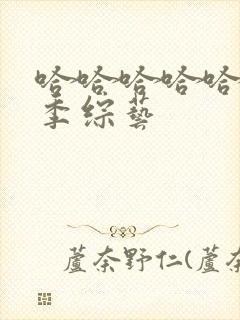 哈哈哈哈哈
季綜藝
蘆奈野仁(蘆奈